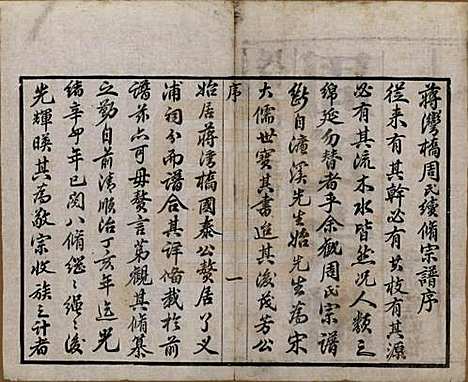 蔣灣橋周氏續脩宗譜序
從来有其幹必有其枝有其源
必有其流木水皆然况人類之
綿延勿替者乎余觀周氏宗譜
斷自濂溪先生始先生為宋
大儒世寶其書進其後茂芳公
序
一
始居蔣灣橋國泰公贅居了义
浦祠分而譜合其詳備載於前
譜茲亦可毋贅言第觀其脩纂
之勤自前清順治丁亥年迄光
緒辛卯年已閱八脩繼〻繩〻之後
光輝暎其為敬宗收族之計者